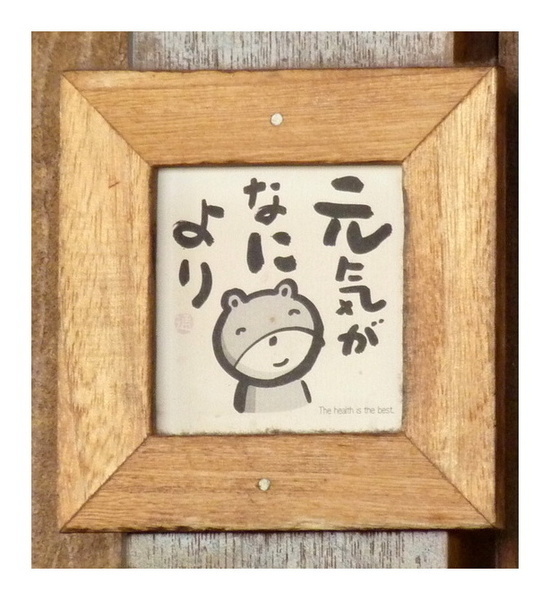 元気が
なに
より
The health is the best.